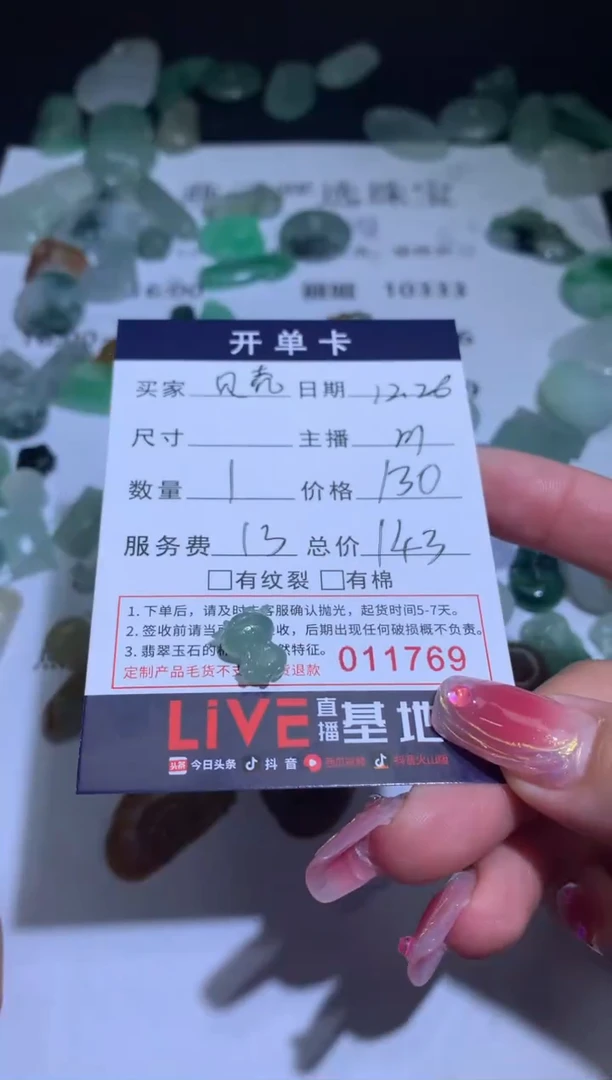 选珠宝
16:00
10333
开单卡
买家 贝壳 日期 12.26
尺寸 主播 m
数量 1 价格 130
服务费 13 总价 143
□有纹裂 □有棉
1. 下单后，请及时 客服确认抛光，起货时间5-7天。
2. 签收前请当 收，后期出现任何破损概不负责。
3. 翡翠玉石的 然特征。
定制产品毛货不支 退款
011769
LiVE 直播基地
头条 今日头条 抖音 西瓜视频 抖音火山版